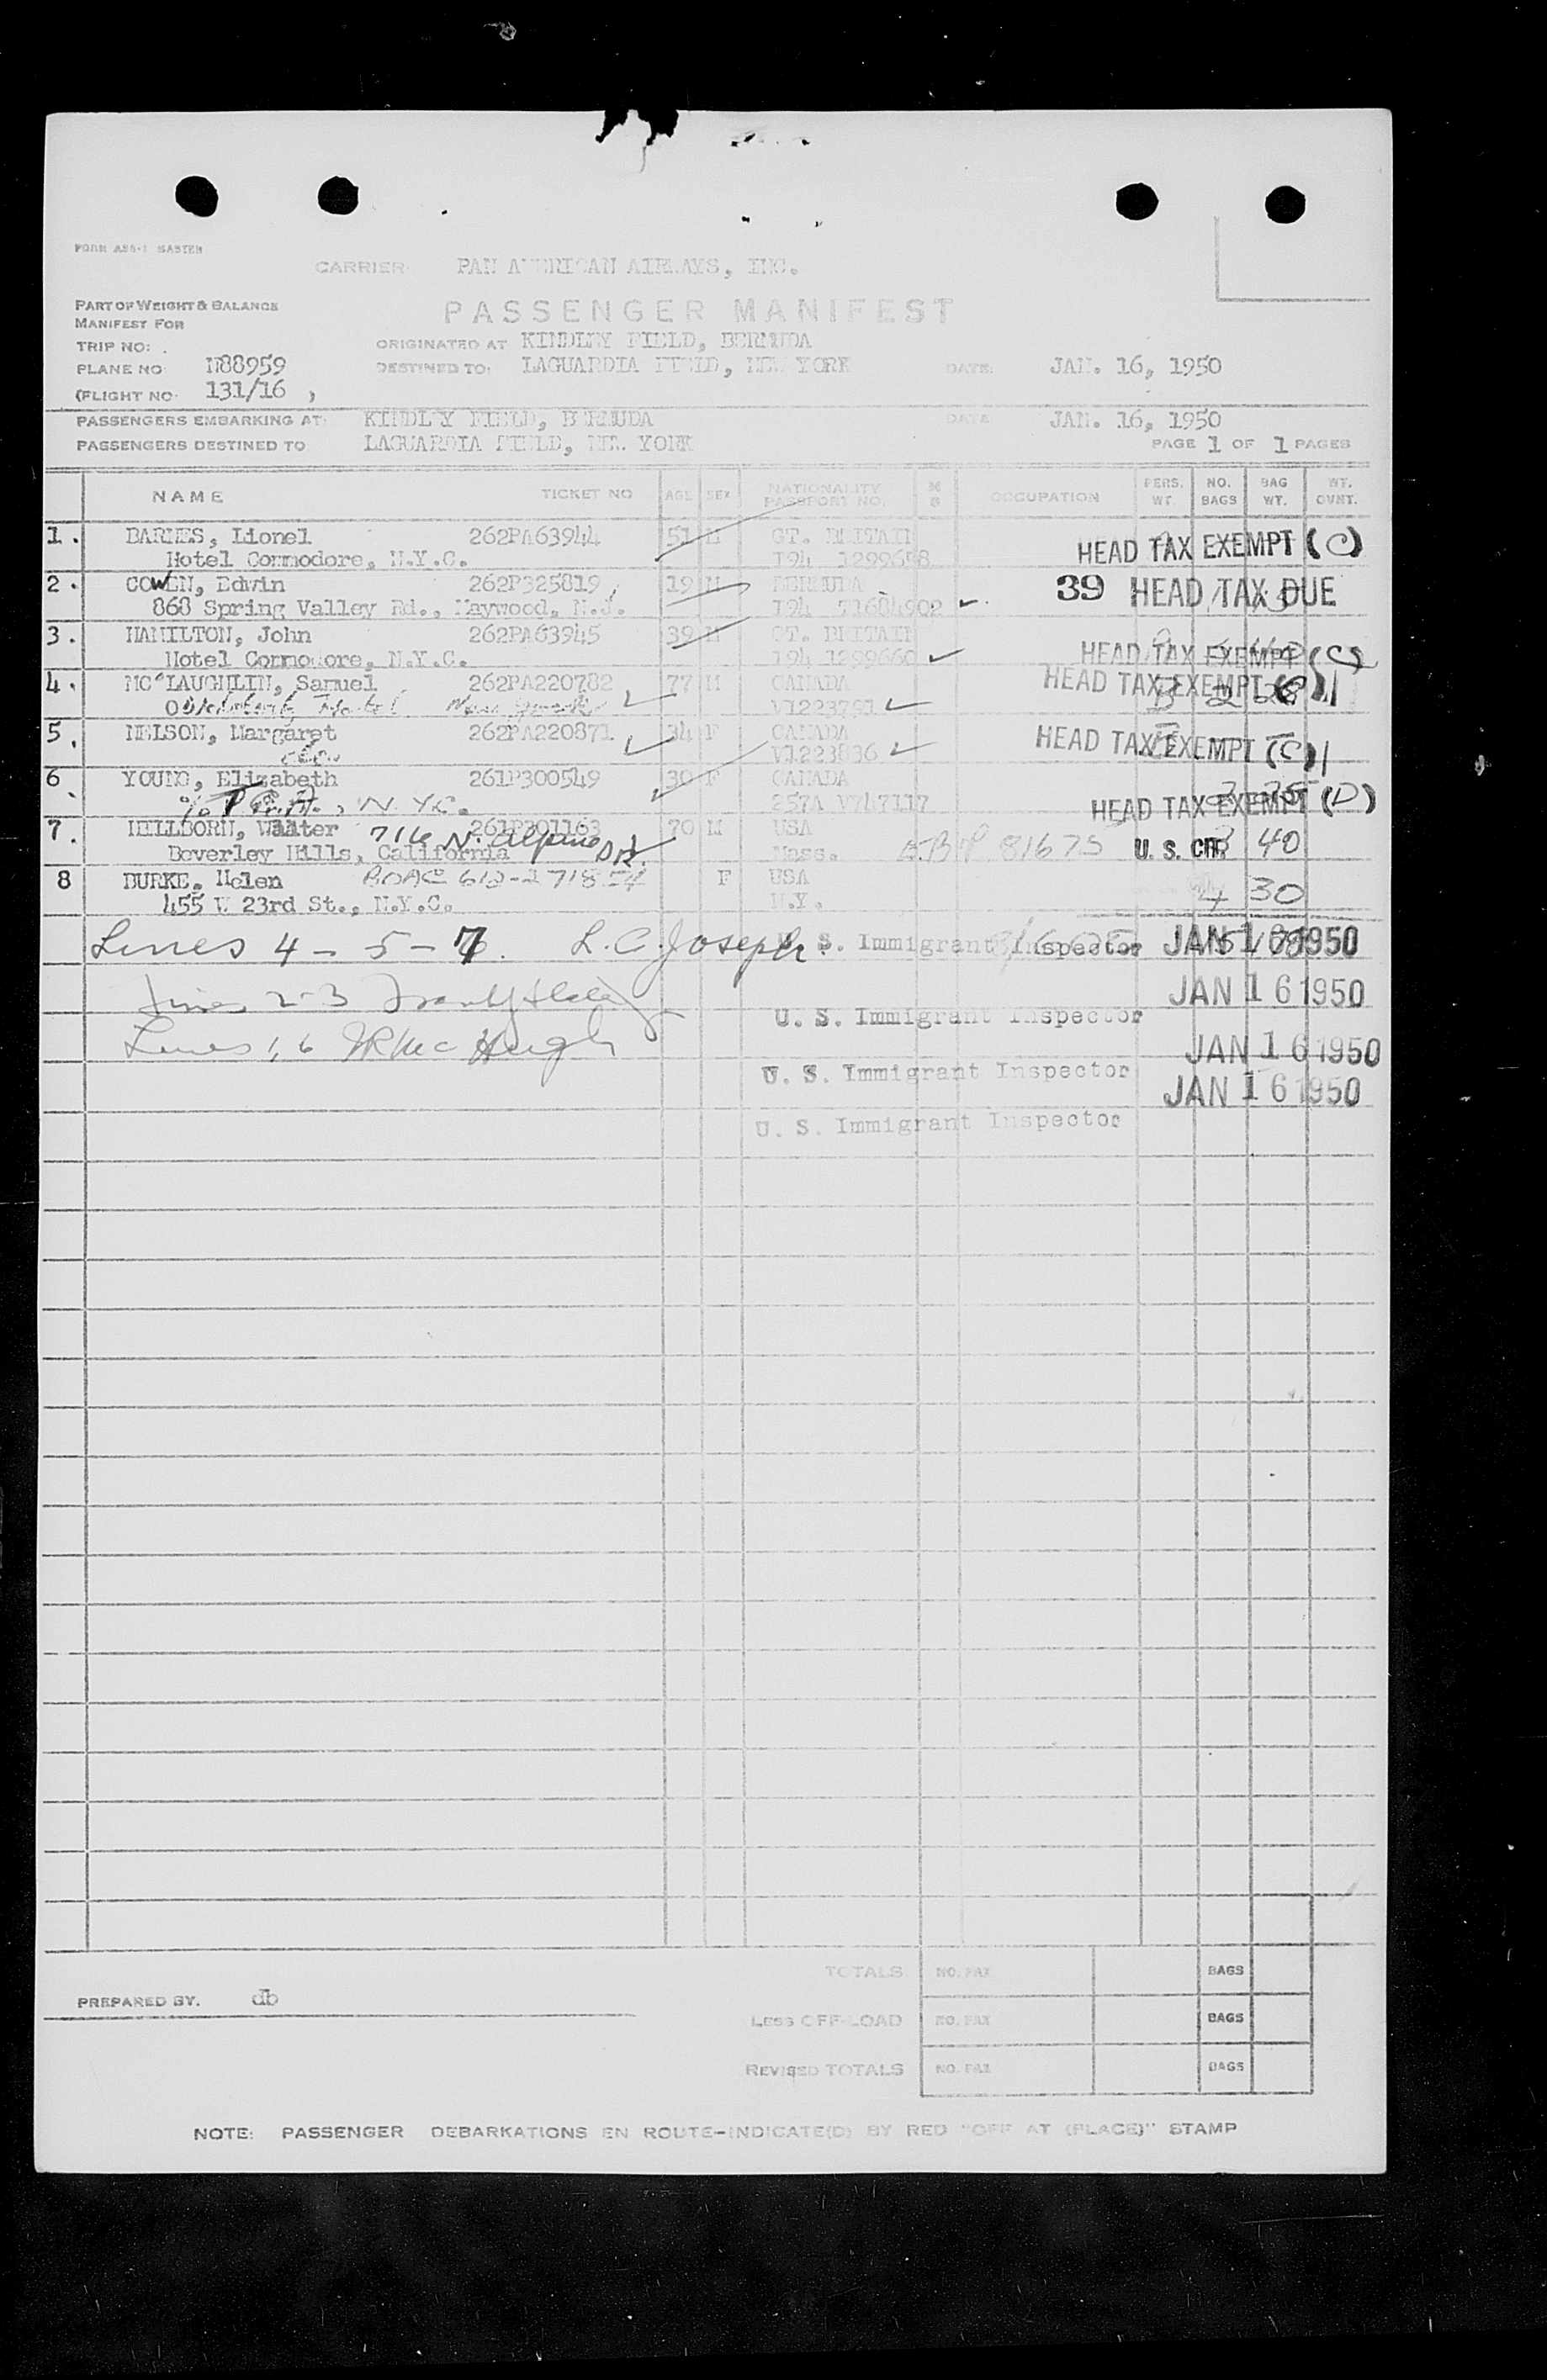 FORM ASS-1 MASTER
CARRIER PAN AMERICAN AIRWAYS, INC.
PART OF WEIGHT & BALANCE
MANIFEST FOR
PASSENGER MANIFEST
TRIP NO: ORIGINATED AT KINDLEY FIELD, BERMUDA
PLANE NO N88959 DESTINED TO: LAGUARDIA FIELD, NEW YORK DATE: JAN. 16, 1950
(FLIGHT NO. 131/16 )
PASSENGERS EMBARKING AT: KINDLEY FIELD, BERMUDA DATE JAN. 16, 1950
PASSENGERS DESTINED TO LAGUARDIA FIELD, NEW YORK PAGE 1 OF 1 PAGES
NAME TICKET NO AGE SEX NATIONALITY PASSPORT NO. M S OCCUPATION PERS. WT. NO. BAGS BAG WT. WT. OVHT.
1. BARNES, Lionel 262PA63944 51 M GT. BRITAIN
Hotel Commodore, N.Y.C. I94 1299658 HEAD TAX EXEMPT (C)
2. COWEN, Edwin 262P325819 19 M BERMUDA 39 HEAD TAX DUE
868 Spring Valley Rd., Maywood, N.J. I94
3. HAMILTON, John 262PA63945 39 M GT. BRITAIN
Hotel Commodore, N.Y.C. I94 1299660 HEAD TAX EXEMPT (C)
4. MC LAUGHLIN, Samuel 262PA220782 77 M CANADA HEAD TAX EXEMPT (C)
Hotel New York V1223791
5. NELSON, Margaret 262PA220871 34 F CANADA HEAD TAX EXEMPT (C)
V1223836
6. YOUNG, Elizabeth 261P300549 30 F CANADA
N.Y.C. 257A V747117 HEAD TAX EXEMPT (D)
7. HELLBORN, Walter 716 N. Alpine Dr. 261P301163 70 M USA
Beverley Hills, California Mass. 81675 U. S. CIT. 3 40
8 BURKE, Helen BOAC F USA
455 W 23rd St., N.Y.C. N.Y. 4 30
Lines 4 - 5 - 7. L. C. Joseph U. S. Immigrant Inspector JAN 16 1950
Lines 2-3 JAN 16 1950
U. S. Immigrant Inspector
Lines 1, 6 JR McHugh JAN 16 1950
U. S. Immigrant Inspector JAN 16 1950
U. S. Immigrant Inspector
TOTALS NO. PAX BAGS
PREPARED BY. db
LESS OFF-LOAD NO. PAX BAGS
REVISED TOTALS NO. PAX BAGS
NOTE: PASSENGER DEBARKATIONS EN ROUTE-INDICATE(D) BY RED "OFF AT (PLACE)" STAMP